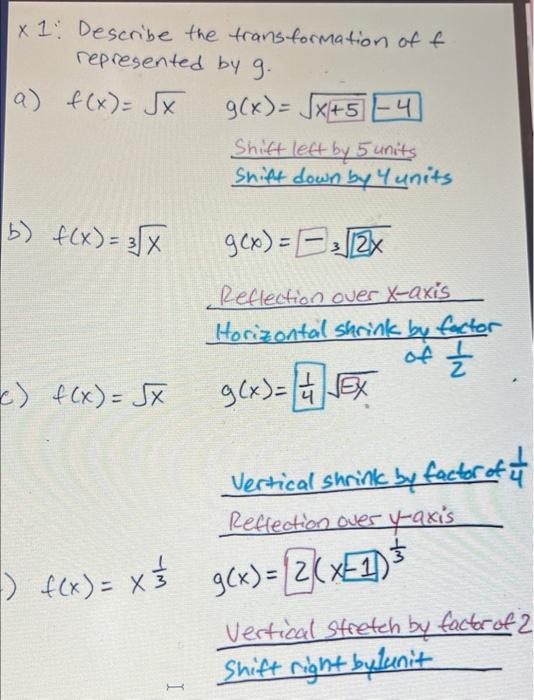 x 1: Describe the transformation of f
represented by g.
a) f(x) = √x g(x) = √x+5 -4
Shift left by 5 units
Shift down by 4 units
b) f(x) = ∛x g(x) = - ∛2x
Reflection over x-axis
Horizontal shrink by factor
of 1/2
c) f(x) = √x g(x) = 1/4 √-x
Vertical shrink by factor of 1/4
Reflection over y-axis
) f(x) = x^1/3 g(x) = 2(x-1)^1/3
Vertical stretch by factor of 2
Shift right by 1 unit